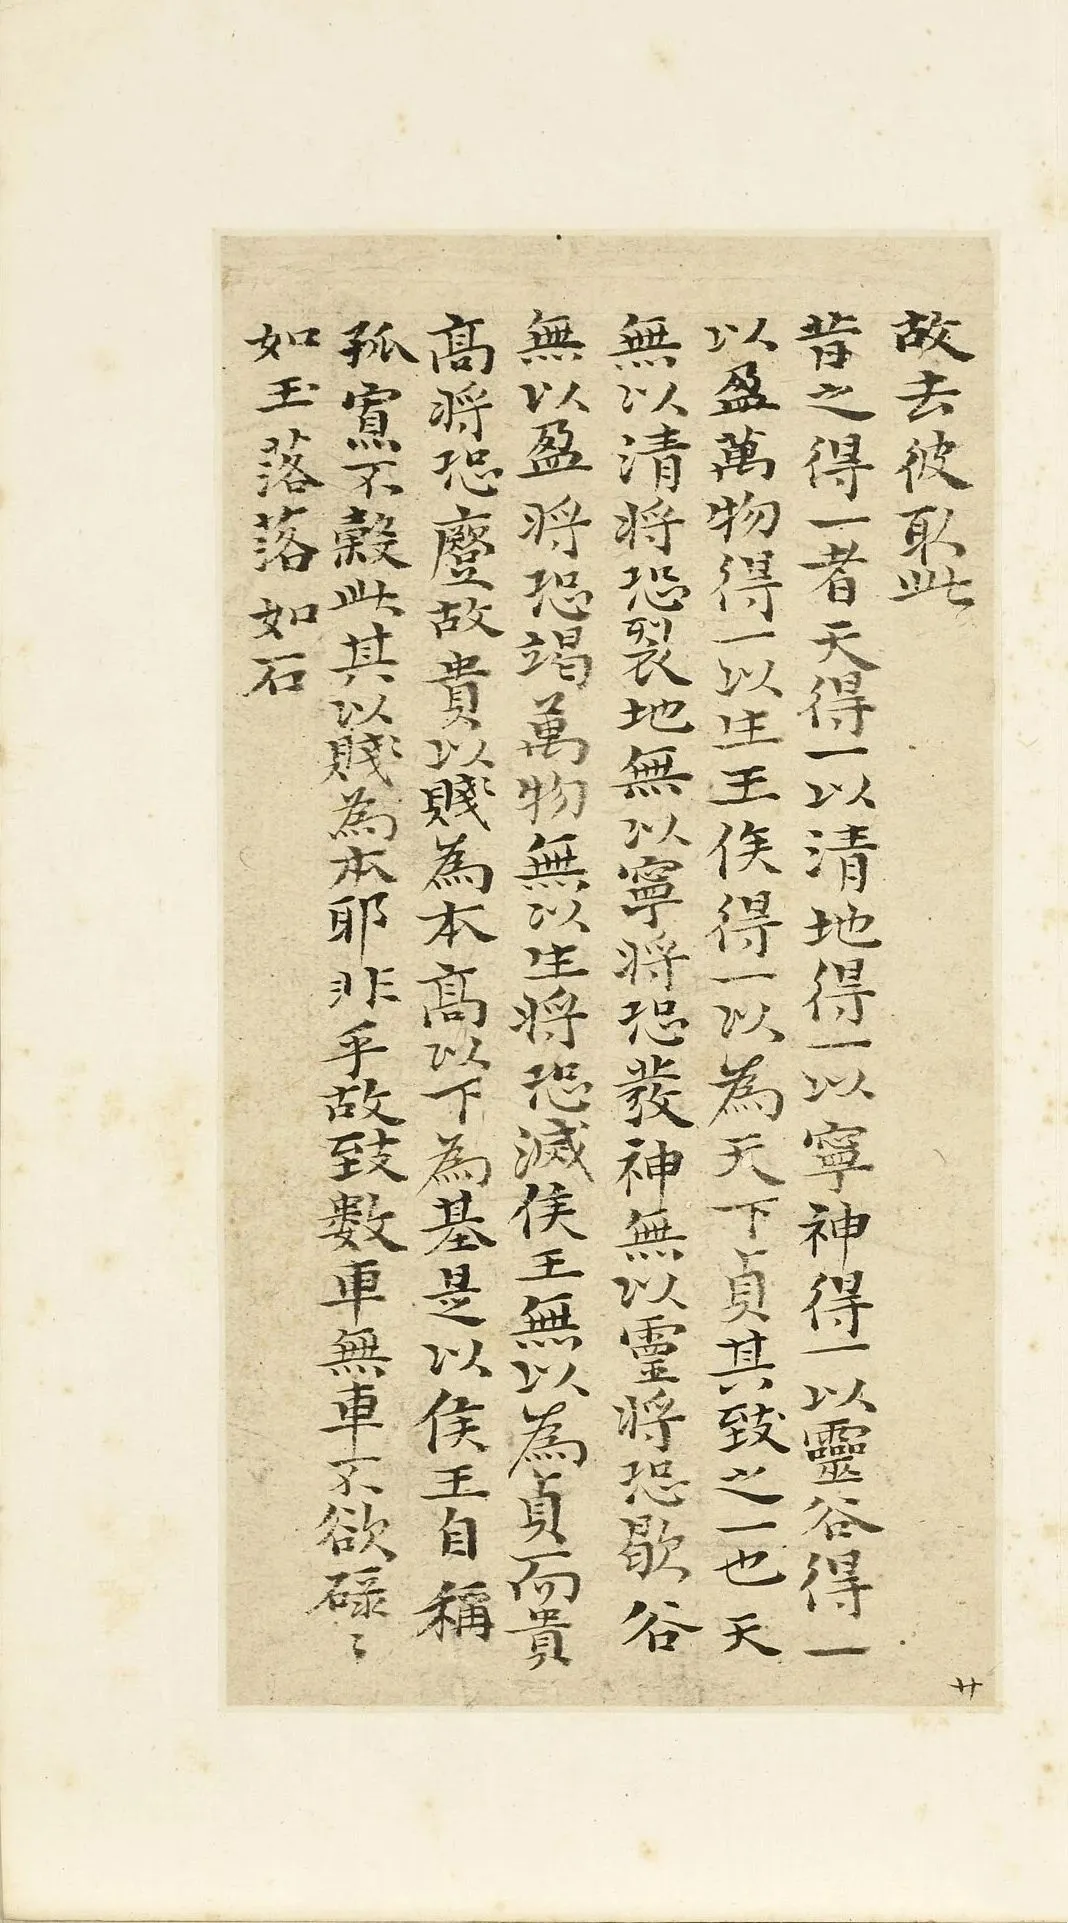 故去彼取此
昔之得一者天得一以清地得一以寧神得一以靈谷得一
以盈萬物得一以生王侯得一以為天下貞其致之一也天
無以清將恐裂地無以寧將恐發神無以靈將恐歇谷
無以盈將恐竭萬物無以生將恐滅侯王無以為貞而貴
高將恐蹷故貴以賤為本高以下為基是以侯王自稱
孤寡不穀此其以賤為本耶非乎故致數車無車不欲碌〻
如玉落落如石
廿